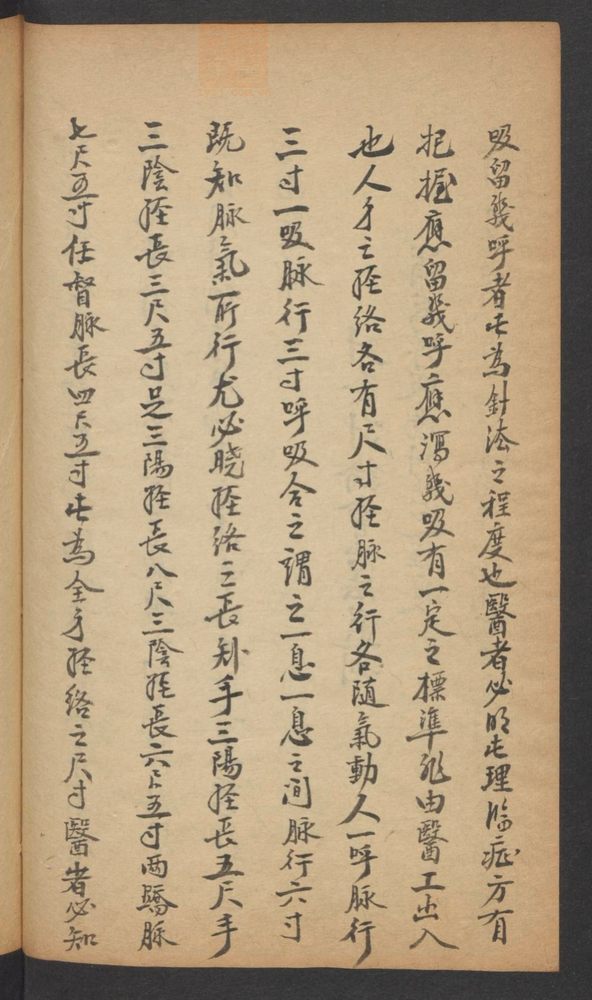 吸留幾呼者此為針法之程度也醫者必明此理臨症方有
把握應留幾呼應瀉幾吸有一定之標準非由醫工出入
也人身之經絡各有尺寸經脉之行各隨氣動人一呼脉行
三寸一吸脉行三寸呼吸合之謂之一息一息之间脉行六寸
既知脉氣所行尤必曉經絡之長短手三陽經長五尺手
三陰經長三尺五寸足三陽經長八尺三陰經長六尺五寸两蹻脉
七尺五寸任督脉長四尺五寸此為全身經絡之尺寸醫者必知